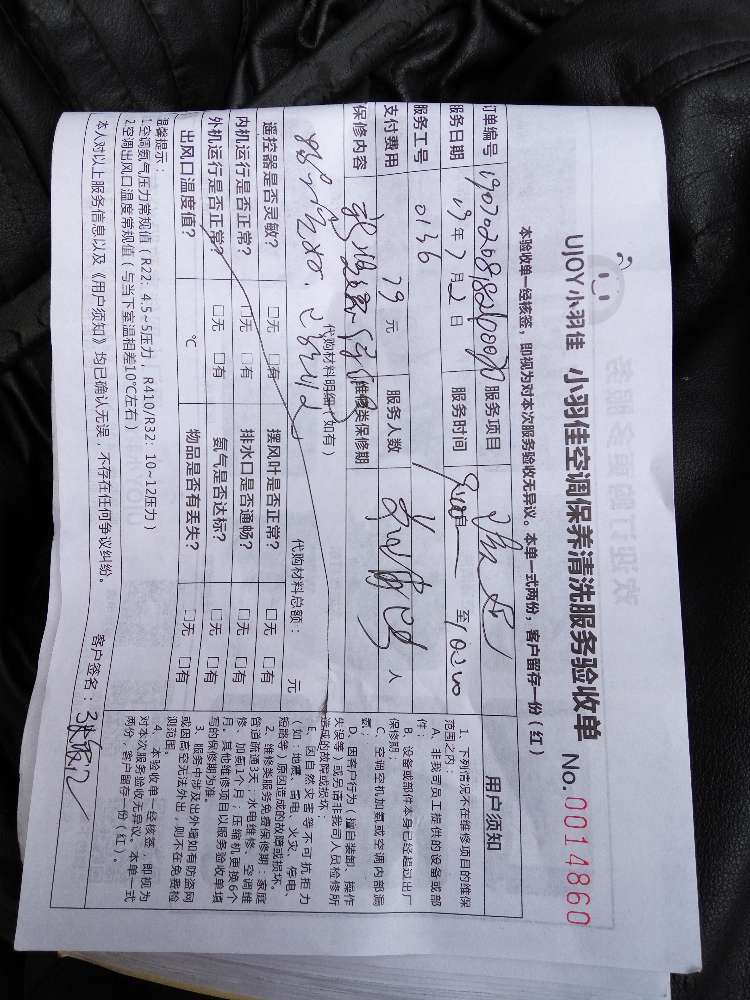 UJOY小羽佳 小羽佳空调保养清洗服务验收单 No.0014860
本验收单一经核签，即视为对本次服务验收无异议。本单一式两份，客户留存一份（红）
订单编号 服务项目
服务日期 19年7月2日 服务时间 至10:00
服务工号 0136
支付费用 79元 服务人数 人
保修内容 维修类保修期
代购材料明细（如有） 代购材料总额： 元
遥控器是否灵敏？ □无 □有 摆风叶是否正常？ □无 □有
内机运行是否正常？ □无 □有 排水口是否通畅？ □无 □有
外机运行是否正常？ □无 □有 氨气是否达标？ □无 □有
出风口温度值？ ℃ 物品是否有丢失？ □无 □有
温馨提示：
1.空调氨气压力常规值（R22：4.5~5压力，R410/R32：10~12压力）
2.空调出风口温度常规值（与当下室温相差10℃左右）
本人对以上服务信息以及《用户须知》均已确认无误，不存在任何争议纠纷。
客户签名：
用户须知
1、下列情况不在维修项目的维保
范围之内：
A、非我司员工提供的设备或部
件；
B、设备或部件本身已经超过出厂
保修期；
C、空调空机加氨或空调内部漏
氨；
D、因客户行为（擅自装卸、操作
失误等）或另请非我司人员检修所
造成的故障或损坏；
E、因自然灾害等不可抗拒力
（如：地震、雷电、火灾、停电、
短路等）原因造成的故障或损坏。
2、维修类服务免费保修期：家庭
管道疏通3天，水电维修、空调维
修、加氨1个月；压缩机更换6个
月，其他维修项目以服务验收单填
写的保修期为准。
3、服务中涉及出外墙如有防盗网
或因高空无法外出，则不在免费检
测范围。
4、本验收单一经核签，即视为
对本次服务验收无异议。本单一式
两份，客户留存一份（红）。